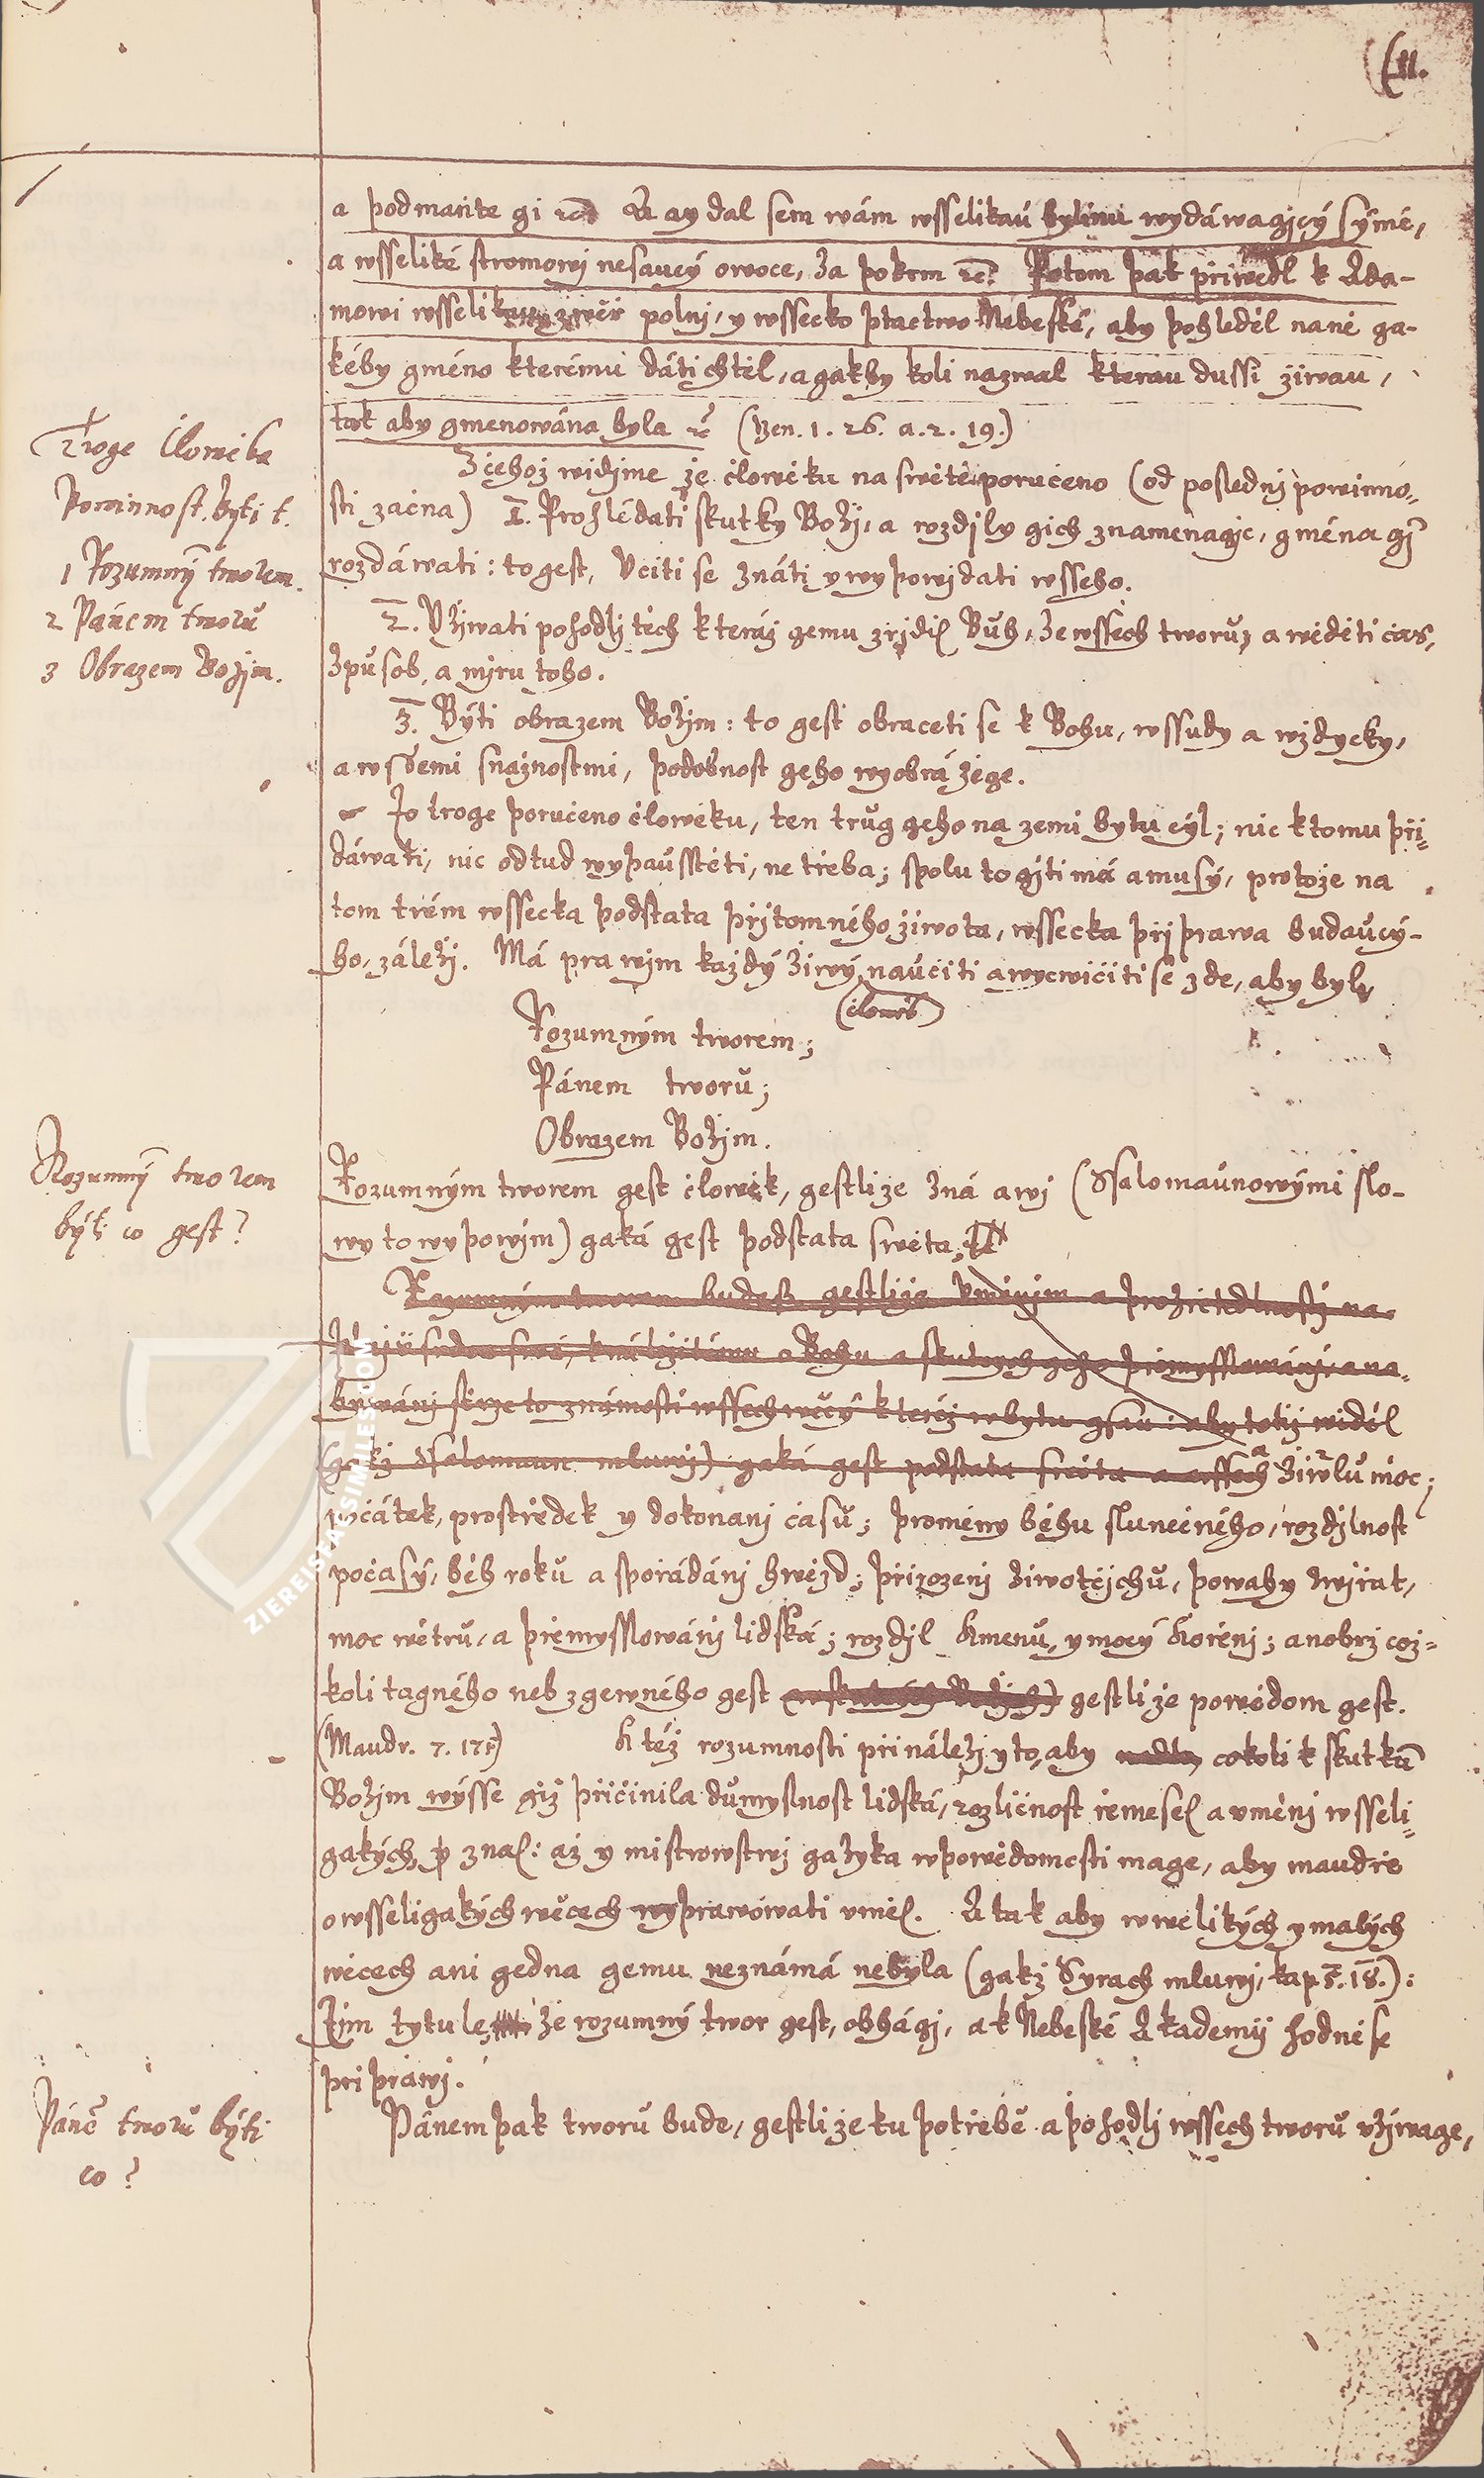 (11.
a podmaňte gi ꝛc. A ay dal sem wám wsselikaú bylinu wydáwagjcý sýmě,
a wsseliké stromowj nesaucý owoce, za pokrm ꝛc. Potom pak přiwedl k Ada-
mowi wsselikau zwěř polnj, y wssecko ptactwo Nebeské, aby pohleděl naně ga-
kéby gméno kterému dáti chtěl, a gakby koli nazwal kterau dussi žiwau,
tak aby gmenowána byla ꝛc (Gen. 1. 26. a. 2. 19.)
Troge člowěka
Powinnost. býti t.
1 Rozumný tworem.
2 Pánem tworů
3 Obrazem Božjm.
Z čehož widjme že člowěku na swětě poručeno (od poslednj powinno-
sti začna) 1. Prohlédati skutky Božj, a rozdjly gich znamenagjc, gména gj
rozdáwati: to gest, Včiti se znáti y wypowjdati wsseho.
2. Vžjwati pohodlj těch kteráž gemu zřjdil Bůh, ze wssech tworů, a wěděti čas,
způsob, a mjru toho.
3. Býti obrazem Božjm: to gest obraceti se k Bohu, wssudy a wždycky,
a wssemi snažnostmi, podobnost geho wyobrážege.
To troge poručeno člowěku, ten trůg geho na zemi bytu cýl; nic k tomu při-
dáwati, nic odtud wypaússtěti, ne třeba; spolu to gjti má a musý, protože na
tom trém wssecka podstata přjtomného žiwota, wssecka přjprawa budaucý-
ho, záležj. Má prawjm každý žiwý naučiti a wycwičiti se zde, aby byl,
(člowěk)
Rozumným tworem;
Pánem tworů;
Obrazem Božjm.
Rozumný tworem
býti co gest?
Rozumným tworem gest člowěk, gestliže zná a wj (Ssalomaúnowými slo-
wy to wypowjm) gaká gest podstata swěta,
Rozumným tworem budess gestliže
(gakž Ssalomaun mluwj) gaká gest podstata swěta a wssech žiwlů moc;
počátek, prostředek y dokonanj časů; proměny běhu slunečného, rozdjlnost
počasý, běh roku a spořádánj hwězd; přirozenj žiwočichů, powahy zwjřat,
moc wětrů, a přemysslowánj lidská; rozdjl kmenů, y mocý kořenj; anobrž což-
koli tagného neb zgewného gest gestliže powědom gest.
(Maudr. 7. 17.) K též rozumnosti přináležj y to, aby cokoli k skutkům
Božjm wýsse giž přičinila důmyslnost lidská, rozličnost řemesel a vměnj wsseli-
gakých, znal: až y mistrowstwj gazyka w powědomosti mage, aby maudře
o wsseligakých wěcech wyprawowati vměl. A tak aby w welikých y malých
wěcech ani gedna gemu neznámá nebyla (gakž Syrach mluwj, kap 5. 18.):
Tjm tytule, že rozumný twor gest, obhágj, a k Nebeské Akademij hodně se
připrawj.
Páně tworů býti
co?
Pánem pak tworů bude, gestliže ku potřebě a pohodlj wssech tworů vžjwage,
ZIEREISFACSIMILES.COM